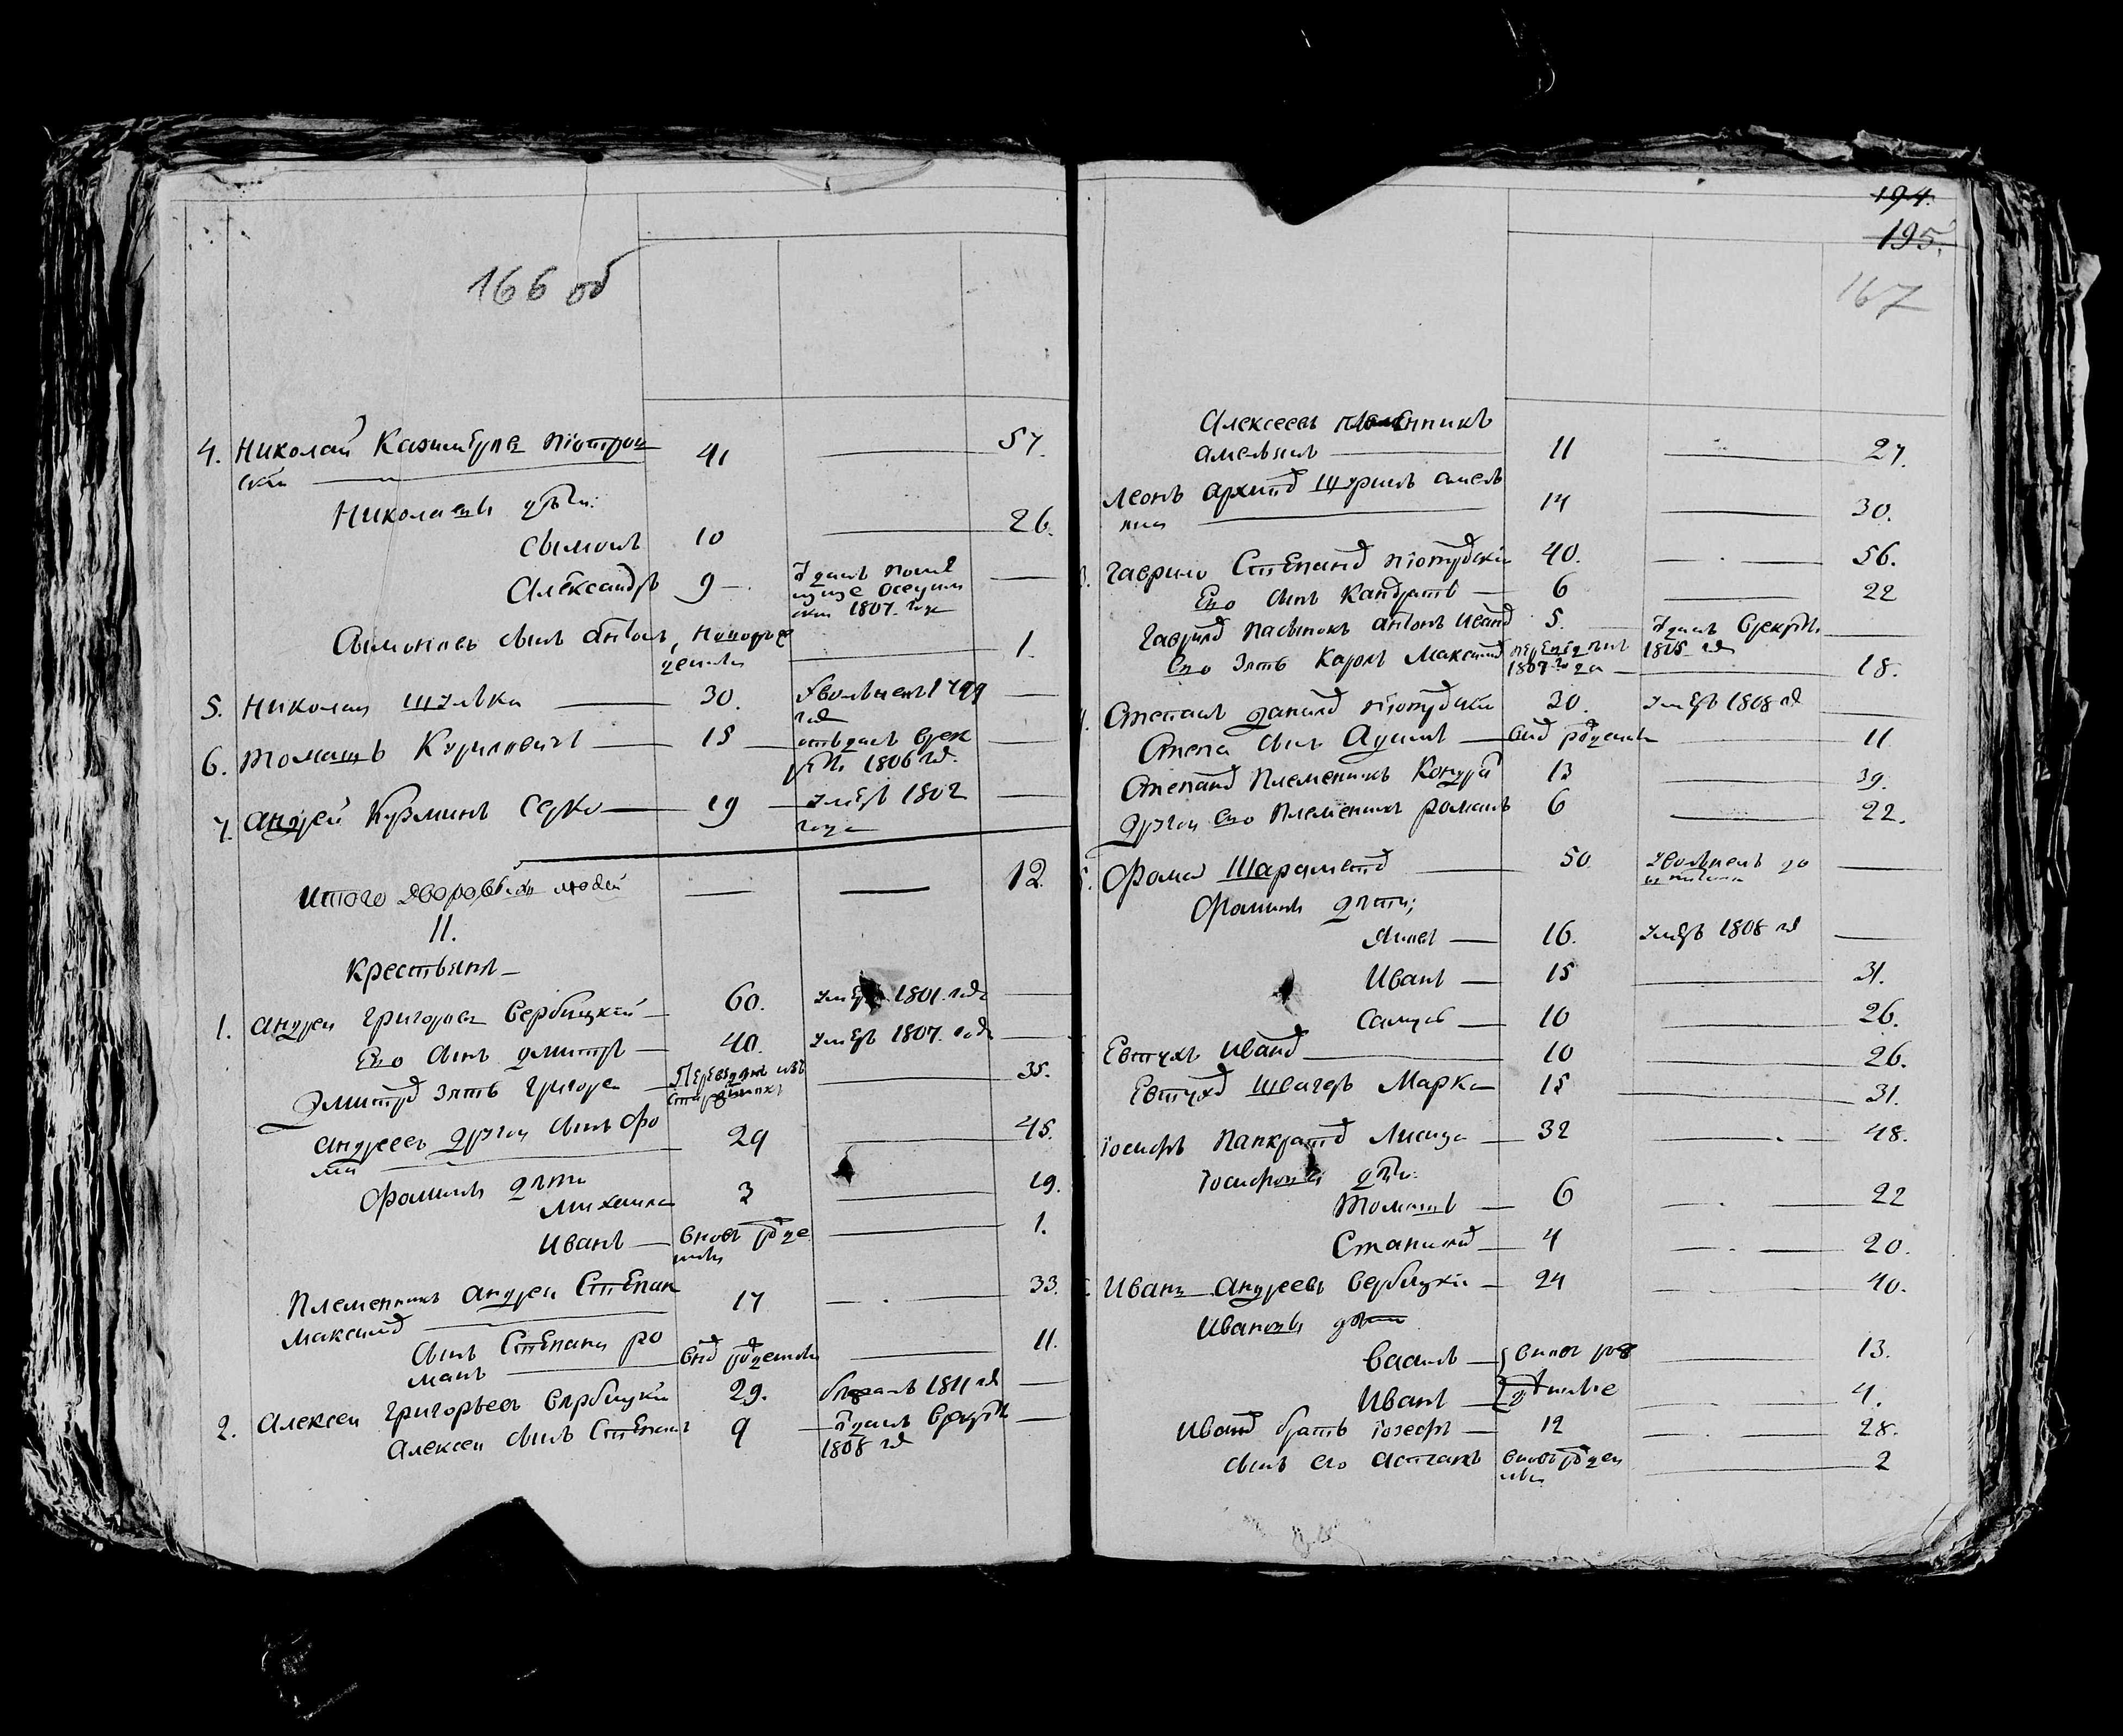 166 об
4. Николай Казимиров Піотров 41 — 57.
ский —
Николаевы дѣти:
Сымонъ 10 — 26.
Александръ 9 — Ѿданъ поме
щице
1807. года —
Сымоновъ сынъ Антонъ, новорож
денный — 1.
5. Николай Шулька — 30. Уволненъ 1799 —
года
6. Томашъ Куриловичъ — 15 — отъданъ врек
руты 1806 год. —
7. Андрей Кузминъ Серко — 19 — умеръ 1802 —
года
Итого дворовыхъ людей — — 12.
II.
Крестьянъ —
1. Андрей Григорьевъ Вербицкій — 60. умеръ 1801. года —
Его сынъ Дмитръ — 40. умеръ 1807. года —
Дмитров зять Григоре — Переведенъ изъ — 35.
Андреевъ другой сынъ Фо 29 — 45.
ма —
Фомины дѣти
Михайла 3 — 19.
Иванъ — вновь рожде — 1.
нный
Племенникъ Андрея Степан 17 — . — 33.
Максимов —
Сынъ Степана Ро внов рожденный — 11.
манъ —
2. Алексей Григорьевъ Вербицкій 29. бежалъ 1811 год —
Алексея сынъ Степанъ 9 — Ѿданъ врекруты —
1808 год
194.
195.
167
Алексеевъ племенникъ
Амельянъ — 11 — 27.
Леонъ Архипов Шуринъ Амель 14 — 30.
яна —
Гаврило Степанов Піотровскій 40. — . — 56.
Его сынъ Кандратъ — 6 — 22
Гаврилов пасынокъ Антонъ Иванов 5. — Ѿданъ врекруты —
1805 год
Его зять Карпъ Максимов переведенъ — 18.
1807 года
Степанъ Данилов Піотровскій 30. умеръ 1808 год —
Степа сынъ Адамъ — внов рожденный — 11
Степанов племенникъ Кондрат 13 — 39.
Другой его племенникъ Романъ 6 — 22.
Фома Шараметов — 50 уволненъ до —
Фомины дѣти;
— 16. умеръ 1808 год —
Иванъ — 15 — 31.
Самусь — 10 — 26.
Евтухъ Иванов — 10 — 26.
Евтухов швагеръ Марко — 15 — 31.
Іосифъ Панкратов Лисица — 32 — . — 48.
Іосифовы дѣти:
Томашъ — 6 — . — 22
Станислав — 4 — . — 20.
Иванъ Андреевъ Вербицкій — 24 — . — 40.
Ивановы дѣти
Василь — вновь рож — 13.
Иванъ — денные — . — 4.
Иванов братъ Іозефъ — 12 — . — 28.
Сынъ его Астапъ вновь рожден — 2
ный